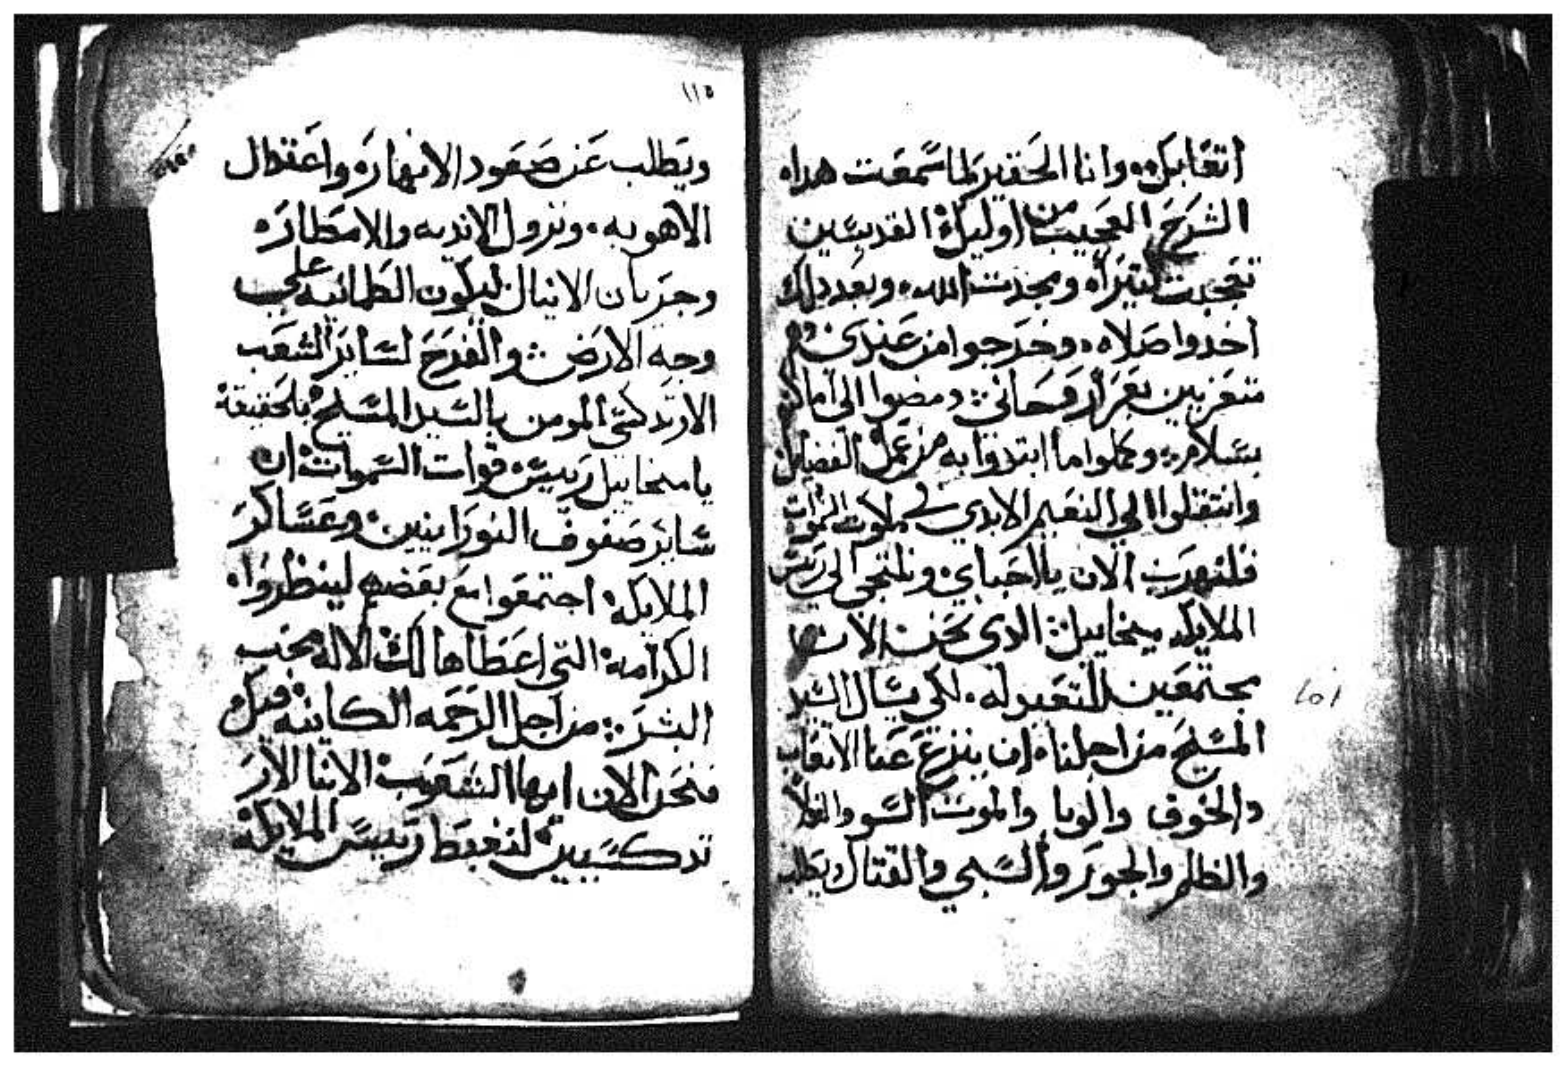 اتعابكم وانا الحقير لما سمعت هداه
الشرح العجيب من اوليك القديسين
تعجبت كتيراه ومجدت الله وبعد دلك
اخدوا صلاه وخرجوا من عندي وهم
متعزيين بعزا روحاني ومضوا الي اماكنهم
بسلام وكملوا ما ابتدوا به من عمل الفضيله
وانتقلوا الي النعيم الابدي في ملكوت السموات
فلنهرب الان يا احباي ونلتجي الي ريس
الملايكه ميخاييل الدي نحن الان
مجتمعين لتعيد له لكي يسال السيد
المسيح من اجلنا ان ينزع عنا الاتعاب
والخوف والوبا والموت السو والغلا
والظلم والجور والسبي والقتال ويطلب
١٥١
١١٥
ويطلب عن صعود الانهار واعتدال
الاهويه ونزول الانديه والامطار
وجريان الانيال ليكون الطمانيه علي
وجه الارض والفرح لساير الشعب
الارتدكسي المومن بالسيد المسيح بالحقيقة
يا ميخاييل رييس قوات السموات ان
ساير صفوف النورانيين وعساكر
الملايكه اجتمعوا مع بعضهم لينظروا
الكرامه التي اعطاها لك الاله محب
البشر من اجل الرحمه الكاينه فيك
فنحن الان ايها الشعوب الابنا الار
تدكسيين لنغبط رييس الملايكه